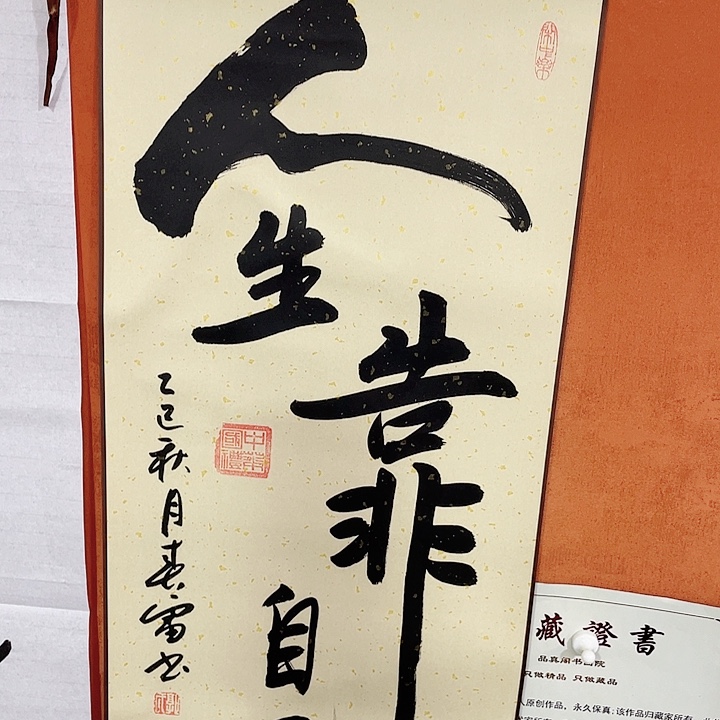 人生靠自
乙巳秋月春雷书
中華國禮
藏證書
品真阁书画院
只做精品 只做藏品
人原创作品，永久保真；该作品归藏家所有